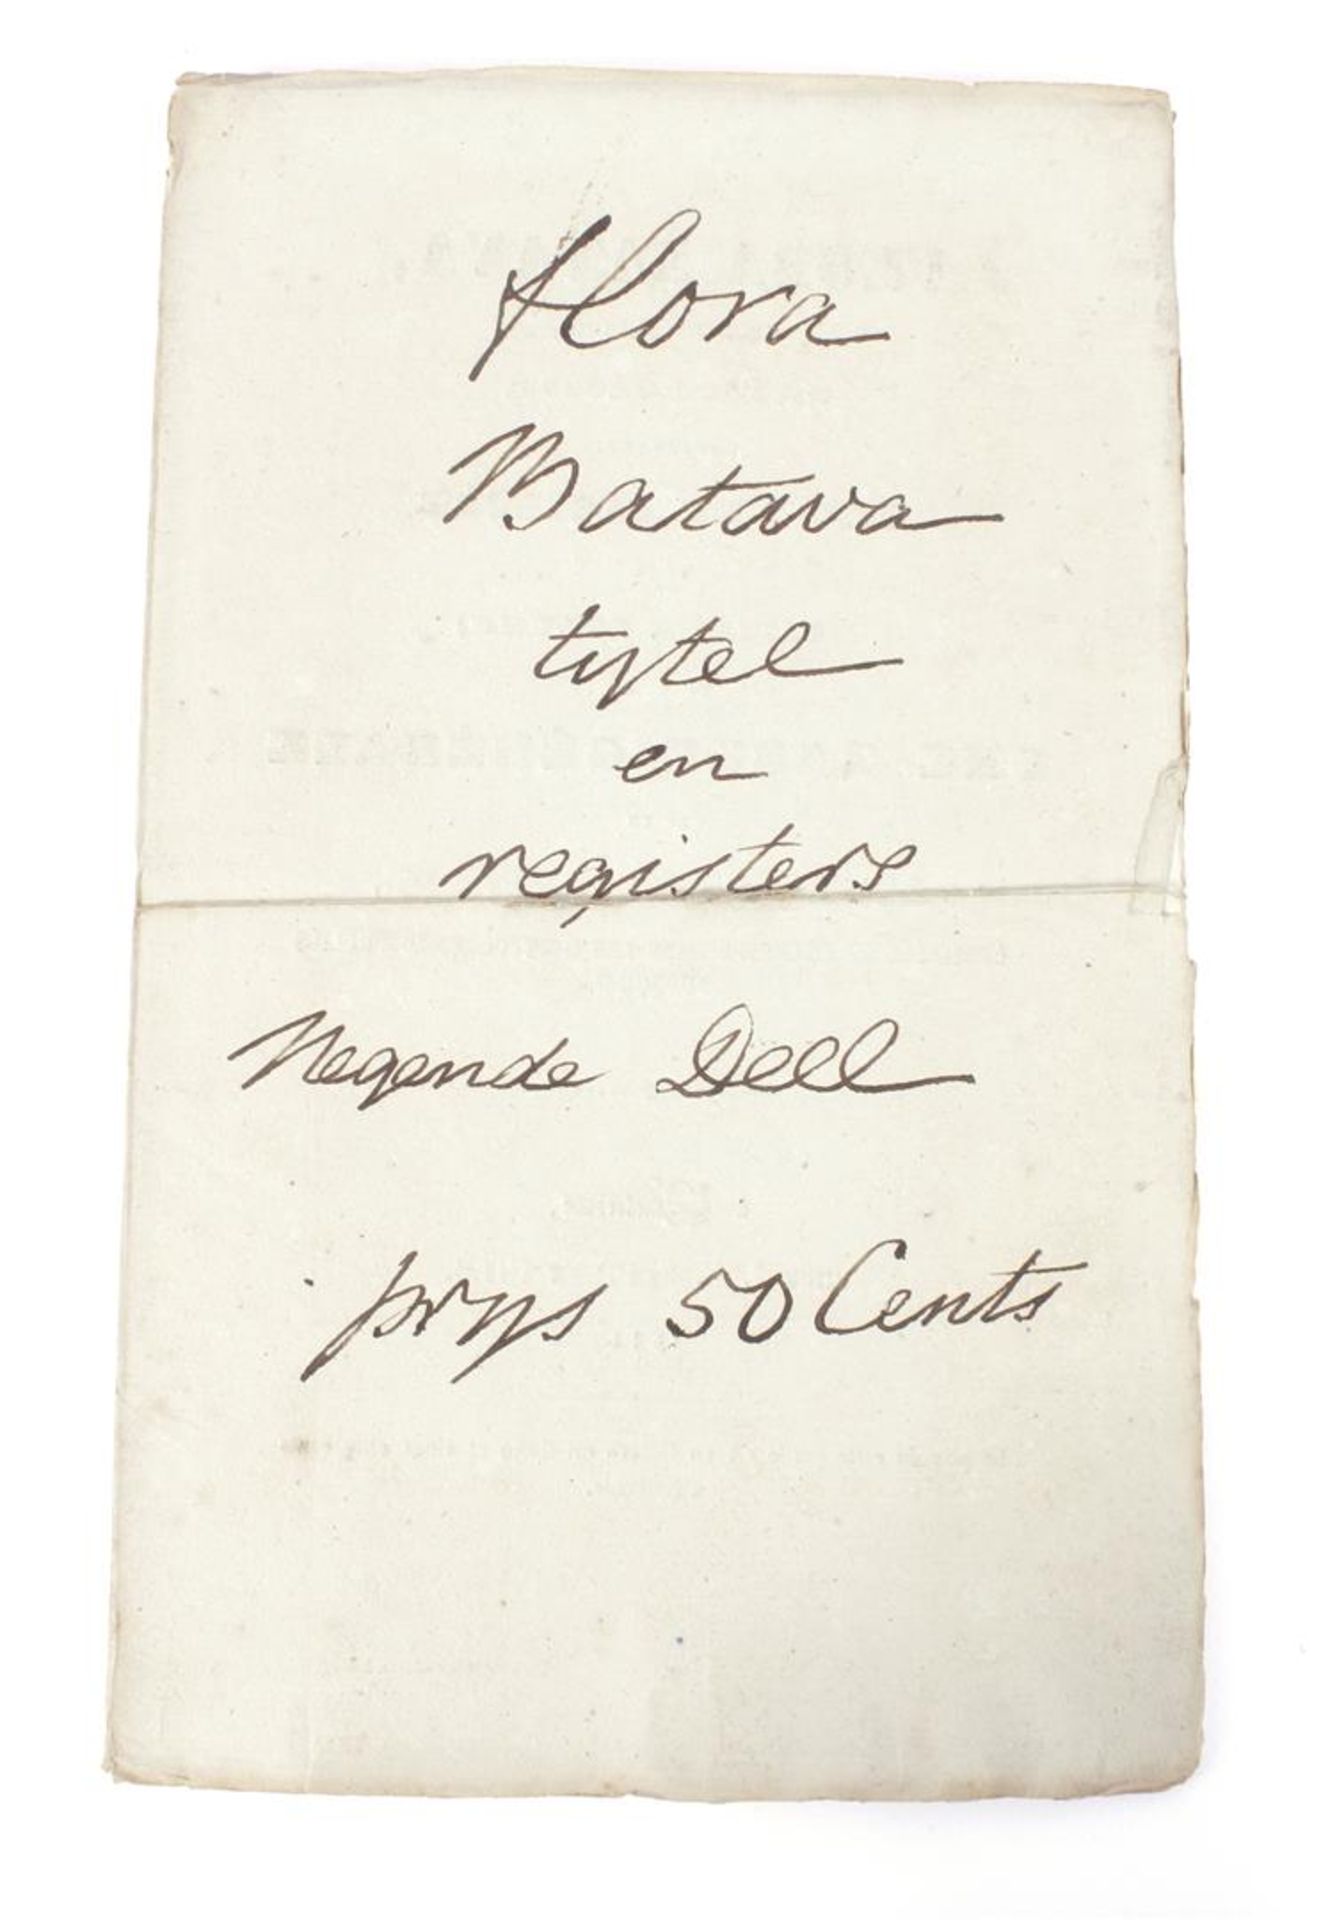 flora
Batava
tytel
en
registers
Negende Deel
prys 50 Cents